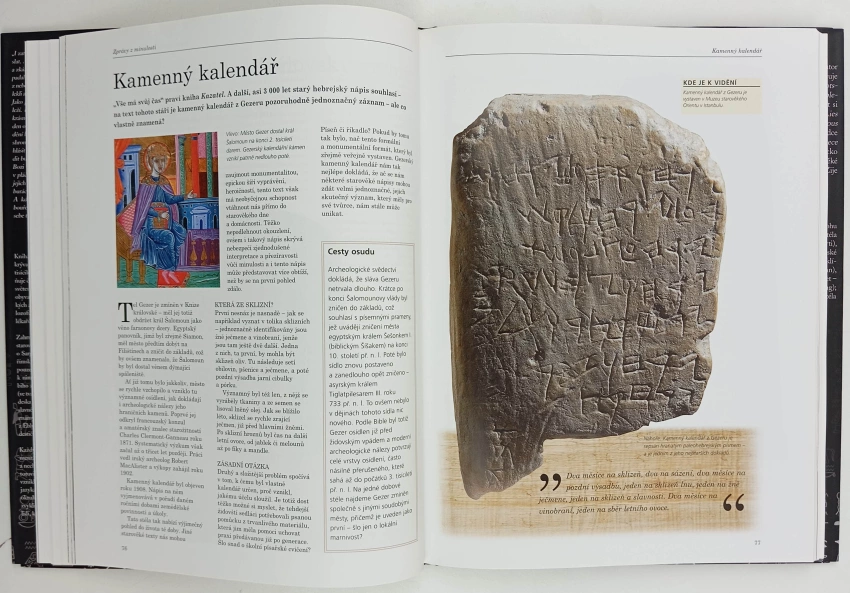 Zprávy z minulosti
Kamenný kalendář
„Vše má svůj čas“ praví kniha Kazatel. A další, asi 3 000 let starý hebrejský nápis souhlasí –
na text tohoto stáří je kamenný kalendář z Gezeru pozoruhodně jednoznačný záznam – ale co
vlastně znamená?
Vlevo: Město Gezer dostal král
Šalomoun na konci 2. tisíciletí
darem. Gezerský kalendářní kámen
vznikl patrně nedlouho poté.
zaujmout monumentalitou,
epickou šíří vyprávění,
heroičností, tento text však
má neobyčejnou schopnost
vtáhnout nás přímo do
starověkého dne
a domácnosti. Těžko
nepodlehnout okouzlení,
ovšem i takový nápis skrývá
nebezpečí zjednodušené
interpretace a přezíravosti
vůči minulosti a i tento nápis
může představovat více obtíží,
než by se na první pohled
zdálo.
Tel Gezer je zmíněn v Knize
královské – měl jej totiž
obdržet král Šalomoun jako
věno faraonovy dcery. Egyptský
panovník, jímž byl zřejmě Siamon,
měl město předtím dobýt na
Filištínech a zničit do základů, což
by ovšem znamenalo, že Šalomoun
by byl dostal věnem dýmající
spáleniště.
Ať už tomu bylo jakkoliv, město
se rychle vzchopilo a vzniklo tu
významné osídlení, jak dokládají
i archeologické nálezy jeho
hraničních kamenů. Poprvé jej
odkryl francouzský konzul
a amatérský znalec starožitností
Charles Clermont-Ganneau roku
1871. Systematický výzkum však
začal až o třicet let později. Práci
vedl irský archeolog Robert
MacAlister a výkopy zahájil roku
1902.
Kamenný kalendář byl objeven
roku 1908. Nápis na něm
vyjmenovává v pořadí daném
ročními dobami zemědělské
povinnosti a úkoly.
Tato stéla tak nabízí výjimečný
pohled do života té doby. Jiné
starověké texty nás mohou
KTERÁ ZE SKLIZNÍ?
První nesnáz je nasnadě – jak se
například vyznat v tolika sklizních
– jednoznačně identifikovány jsou
jiné ječmene a vinobraní, jenže
jsou tam ještě dvě další. Jedna
z nich, ta první, by mohla být
sklizeň oliv. Tu následuje setí
obilovin, pšenice a ječmene, a poté
pozdní výsadba jarní cibulky
a pórku.
Významný byl též len, z nějž se
vyráběly tkaniny a ze semen se
lisoval lněný olej. Jak se blížilo
léto, sklízel se rychle zrající
ječmen, již před hlavními žněmi.
Po sklizni hroznů byl čas na další
letní ovoce, od jablek či melounů
až po fíky a mandle.
ZÁSADNÍ OTÁZKA
Druhý a složitější problém spočívá
v tom, k čemu byl vlastně
kalendář určen, proč vznikl,
jakému účelu sloužil. Je totiž dost
těžko možné si myslet, že tehdejší
židovští sedláci potřebovali psanou
pomůcku z trvanlivého materiálu,
která jim měla pomoci uchovat
praxi předávanou již po generace.
Šlo snad o školní písařské cvičení?
Píseň či říkadlo? Pokud by tomu
tak bylo, nač tento formální
a monumentální formát, který byl
zřejmě veřejně vystaven. Gezerský
kamenný kalendář nám tak
nejlépe dokládá, že ač se nám
některé starověké nápisy mohou
zdát velmi jednoznačné, jejich
skutečný význam, který měly pro
své tvůrce, nám stále může
unikat.
Cesty osudu
Archeologické svědectví
dokládá, že sláva Gezeru
netrvala dlouho. Krátce po
konci Šalomounovy vlády byl
zničen do základů, což
souhlasí s písemnými prameny,
jež uvádějí zničení města
egyptským králem Šešonkem I.
(biblickým Šišakem) na konci
10. století př. n. l. Poté bylo
sídlo znovu postaveno
a zanedlouho opět zničeno –
asyrským králem
Tiglatpilesarem III. roku
733 př. n. l. To ovšem nebylo
v dějinách tohoto sídla nic
nového. Podle Bible byl totiž
Gezer osídlen již před
židovským vpádem a moderní
archeologické nálezy potvrzují
celé vrstvy osídlení, často
násilně přerušeného, které
sahá až do počátku 3. tisíciletí
př. n. l. Na jedné dobové
stéle najdeme Gezer zmíněn
společně s jinými soudobými
městy, přičemž je uveden jako
první – šlo jen o lokální
marnivost?
76
Kamenný kalendář
KDE JE K VIDĚNÍ
Kamenný kalendář z Gezeru je
vystaven v Muzeu starověkého
Orientu v Istanbulu.
Nahoře: Kamenný kalendář z Gezeru je
a je jedním z jeho nejstarších dokladů.
„Dva měsíce na sklizeň, dva na sázení, dva měsíce na
pozdní výsadbu, jeden na sklizeň lnu, jeden na žně
ječmene, jeden na sklizeň a slavnosti. Dva měsíce na
vinobraní, jeden na sběr letního ovoce.“
77